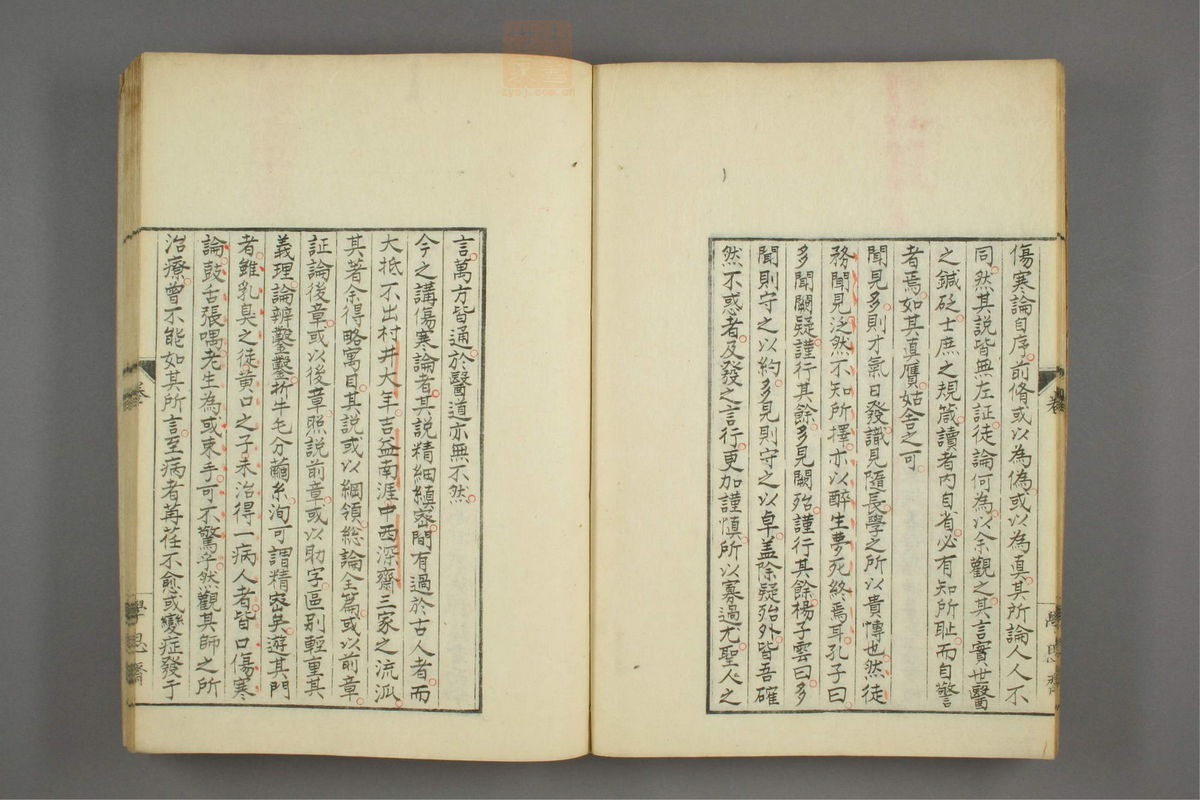 傷寒論自序前脩或以為偽或以為真其所論人人不
同然其説皆無左証徒論何為以余觀之其言實世醫
之鍼砭士庶之規箴讀者内自省必有知所恥而自警
者焉如其真贋姑舍之可
聞見多則才氣日發識見隨長學之所以貴博也然徒
務聞見泛然不知所擇亦以醉生夢死終焉耳孔子曰
多聞闕疑謹行其餘多見闕殆謹行其餘楊子雲曰多
聞則守之以約多見則守之以卓盖除疑殆外皆吾確
然不惑者及發之言行更加謹慎所以寡過尤聖人之
言萬方皆通於醫道亦無不然
今之講傷寒論者其説精細縝密間有過於古人者而
大抵不出村井大年吉益南涯中西深齋三家之流派
其著余得略寓目其説或以綱領総論全篇或以前章
証論後章或以後章照説前章或以助字區别輕重其
義理論辨鑿鑿析牛毛分繭糸洵可謂精密矣遊其門
者雖乳臭之徒黄口之子未治得一病人者皆口傷寒
論鼓舌張喁老生為或束手可不驚乎然觀其師之所
治療曾不能如其所言至病者苒荏不愈或變症發于
卷
學思齋